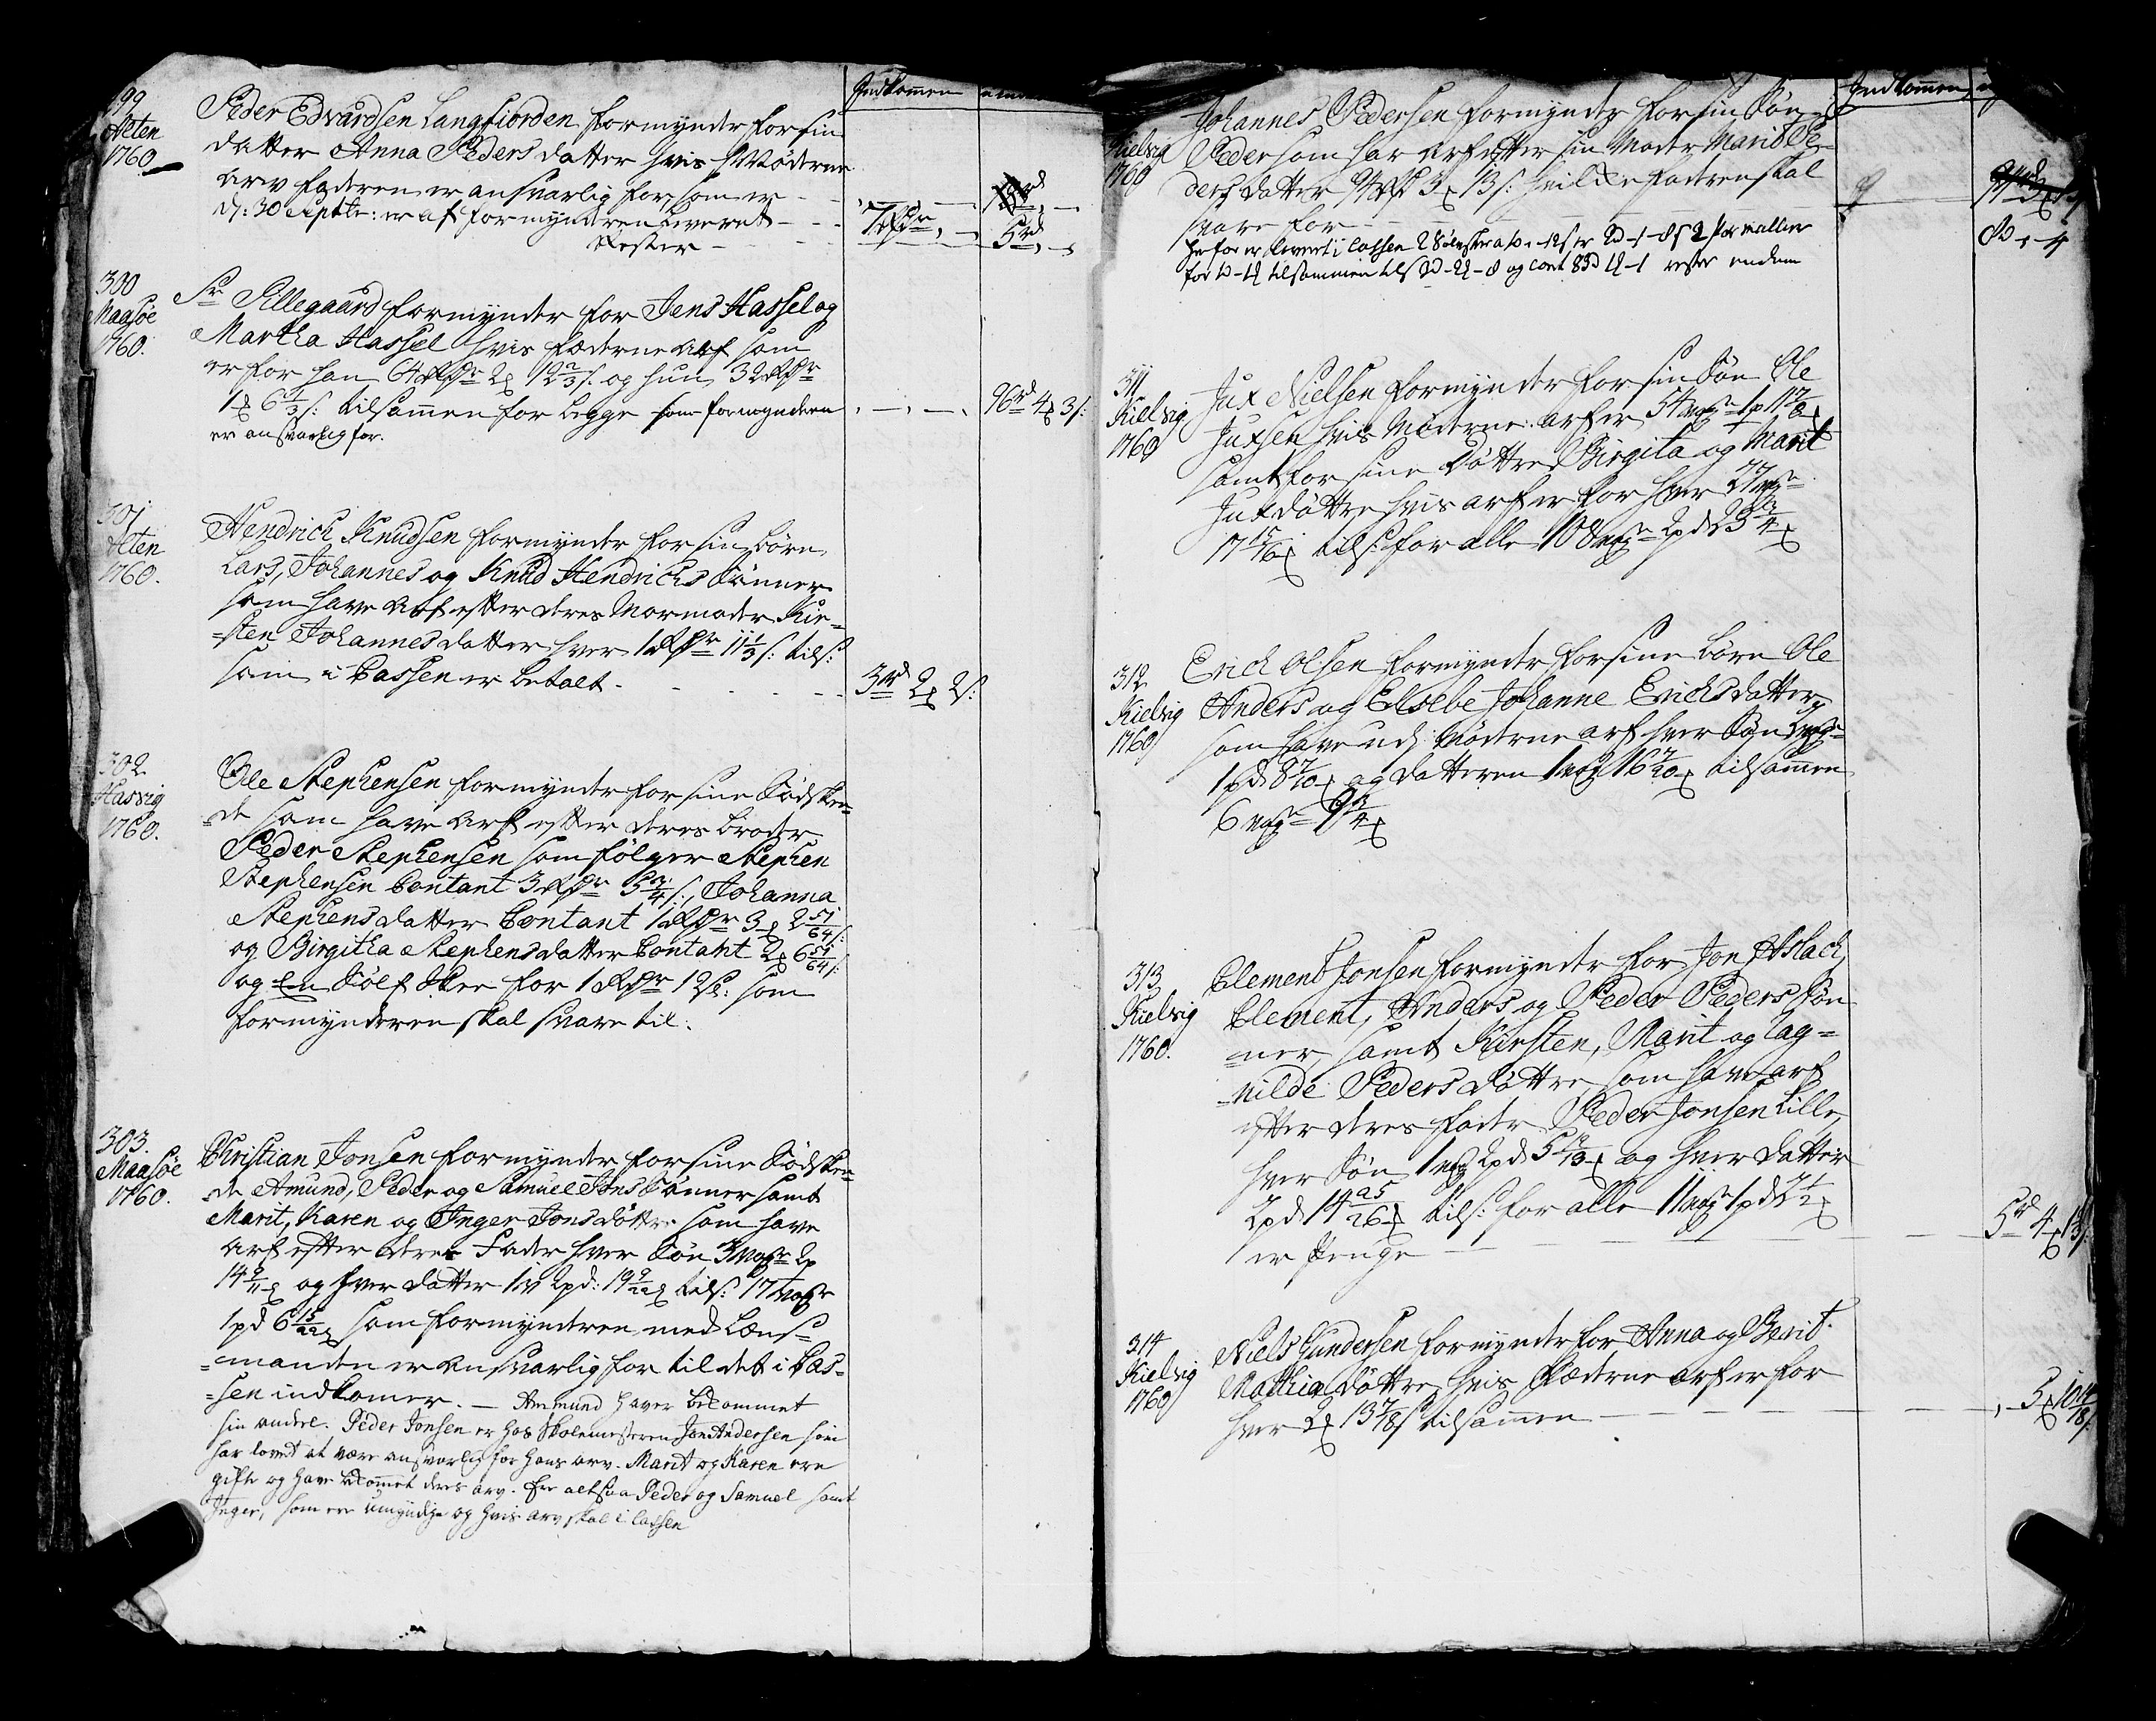 Indkommen
299
Alten
1760
Peder Edvardsen Langfiorden formynder for sin
datter Anna Pedersdatter hvis Møderne
Arv faderen er ansvarlig for, som er
d: 30 Septbr: er af formynderen leveret - - 7 Rdr
Rester - 5 rd
300
Maasøe
1760.
Sr Pillegaard formynder for Jens Hassel og
Martha Hassel hvis fæderne Arf som
er for ham 64 Rdr 2 12 2/3 s. og hun 32 Rdr
1 6 1/3 s: tilsammen for begge som formynderen 96 rd 4 3 s:
er ansvarlig for.
301
Alten
1760.
Hendrich Knudsen formynder for sin børn
Lars, Johannes og Knud Hendrichs Sønner
som have Arf efter deres Mormoder Kir-
-sten Johannesdatter hver 1 Rdr 11 1/3 s: tils:
som i Cassen er betalt - - - 3 rd 2 2 s:
302
Hasvig
1760.
Ole Stephensen formynder for sine Sødsken-
-de som have Arf efter deres broder
Peder Stephensen som følger Stephen
Stephensen Contant 3 Rdr 5 3/4 s:, Johanna
Stephensdatter Contant 1 Rdr 3 2 51/64 s:
og Birgitha Stephensdatter Contant 2 6 51/64 s:
og En Sølf Skee for 1 Rdr 12 s: som
formynderen skal svare til.
303.
Maasøe
1760.
Christian Jonsen formynder for sine Sødsken-
-de Amund, Peder og Samuel Jons Sønner samt
Marit, Karen og Inger Jonsdøttre som have
Arf efter deres Fader hver Søn 3 vog 2 p
14 9/11 og hver datter 1 v 2 pd: 19 9/22 tils: 17 vog
1 pd 6 15/22 som formynderen med Læns-
-manden er ansvarlig for til det i Cas-
-sen indkomer. - Ammund haver bekommet
sin andeel. Peder Jonsen er hos Skolemesteren Jon Andersen som
har lovet at være ansvarlig for hans arv. Marit og Karen ere
gifte og have bekommet deres arv. Ere altsaa Peder og Samuel samt
Inger, som ere umyndige og hvis arv skal i Cassen
Indkommen
Kielvig
1760
Johannes Pedersen formynder for sin Søn
Peder som har Arf efter sin Moder Marit Pe-
dersdatter 94 Rd 3 13 s: hvilke faderen skal
svare for
herfor er leveret i Cassen 2 Sølvskeer
rester endnu
311
Kielvig
1760
Jux Nielsen formynder for sin Søn Ole
Juxsen hvis Møderne arf er 54 vog 1 p 11 7/8
samt for sine døttre Birgita og Marit
Juxdøttre hvis arf er for hver 27 vog
17 15/16 tils: for alle 108 vog 2 pd 23 3/4
312
Kielvig
1760
Erich Olsen formynder for sine børn Ole
Anders og Elsebe Johanne Erichsdatter
som have udj Møderne arf hver Søn 2 vog
1 pd 8 7/10 og datteren 1 vog 16 7/20 tilsammen
6 vog 9 3/4
313
Kielvig
1760.
Clement Jonsen formynder for Jon, Aslach,
Clement, Anders og Peder Peders Søn-
-ner, samt Kirsten, Marit og Lag-
-nilde Peders døttre som have arf
efter deres fader Peder Jonsen Lille,
hver Søn 1 vog 2 pd 5 12/13 og hver datter
2 pd 14 25/26 tils: for alle 11 vog 1 pd 2 1/2
er penge - 5 rd 4 13 s:
314
Kielvig
1760
Niels Gundersen formynder for Anna og Berit
Mathiædøttre hvis fæderne arf er for
hver 2 13 7/8 s tilsammen - 5 10 14/18 s: